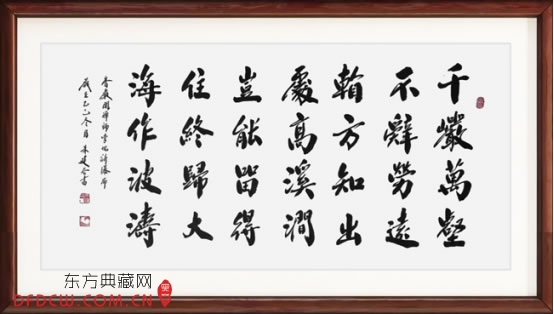 千巖萬壑
不辭勞遠
看方知出
處高溪澗
豈能留得
住終歸大
海作波濤
香嚴閒禪師李忱詩瀑布
冬月 朱建書
东方典藏网
DFDCW.COM.CN